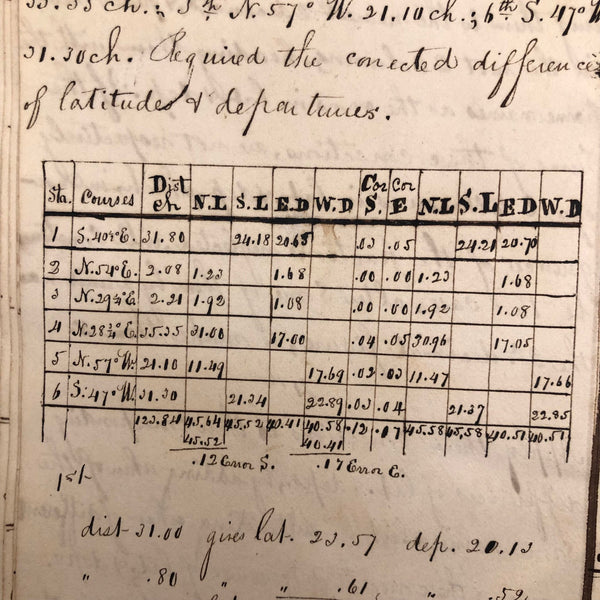 35.35 ch.; 5th N. 57° W. 21.10 ch.; 6th S. 47° W
31.30 ch. Required the corrected differences
of latitudes & departures.
Sta. Courses Dist ch N.L S.L E.D W.D Cor S. Cor E N.L S.L E.D W.D
1 S. 40½° E. 31.80 24.18 20.65 .03 .05 24.21 20.70
2 N. 54° E. 2.08 1.23 1.68 .00 .00 1.23 1.68
3 N. 29¼° E. 2.21 1.92 1.08 .00 .00 1.92 1.08
4 N. 28¾° E. 35.35 31.00 17.00 .04 .05 30.96 17.05
5 N. 57° W. 21.10 11.49 17.69 .02 .03 11.47 17.66
6 S. 47° W. 31.30 21.34 22.89 .03 .04 21.37 22.85
123.84 45.64 45.52 40.41 40.58 .12 .17 45.58 45.58 40.51 40.51
45.52 40.41
.12 Error S. .17 Error E.
1st
dist 31.00 gives lat. 23.57 dep. 20.13
" .80 " " .61 " .52